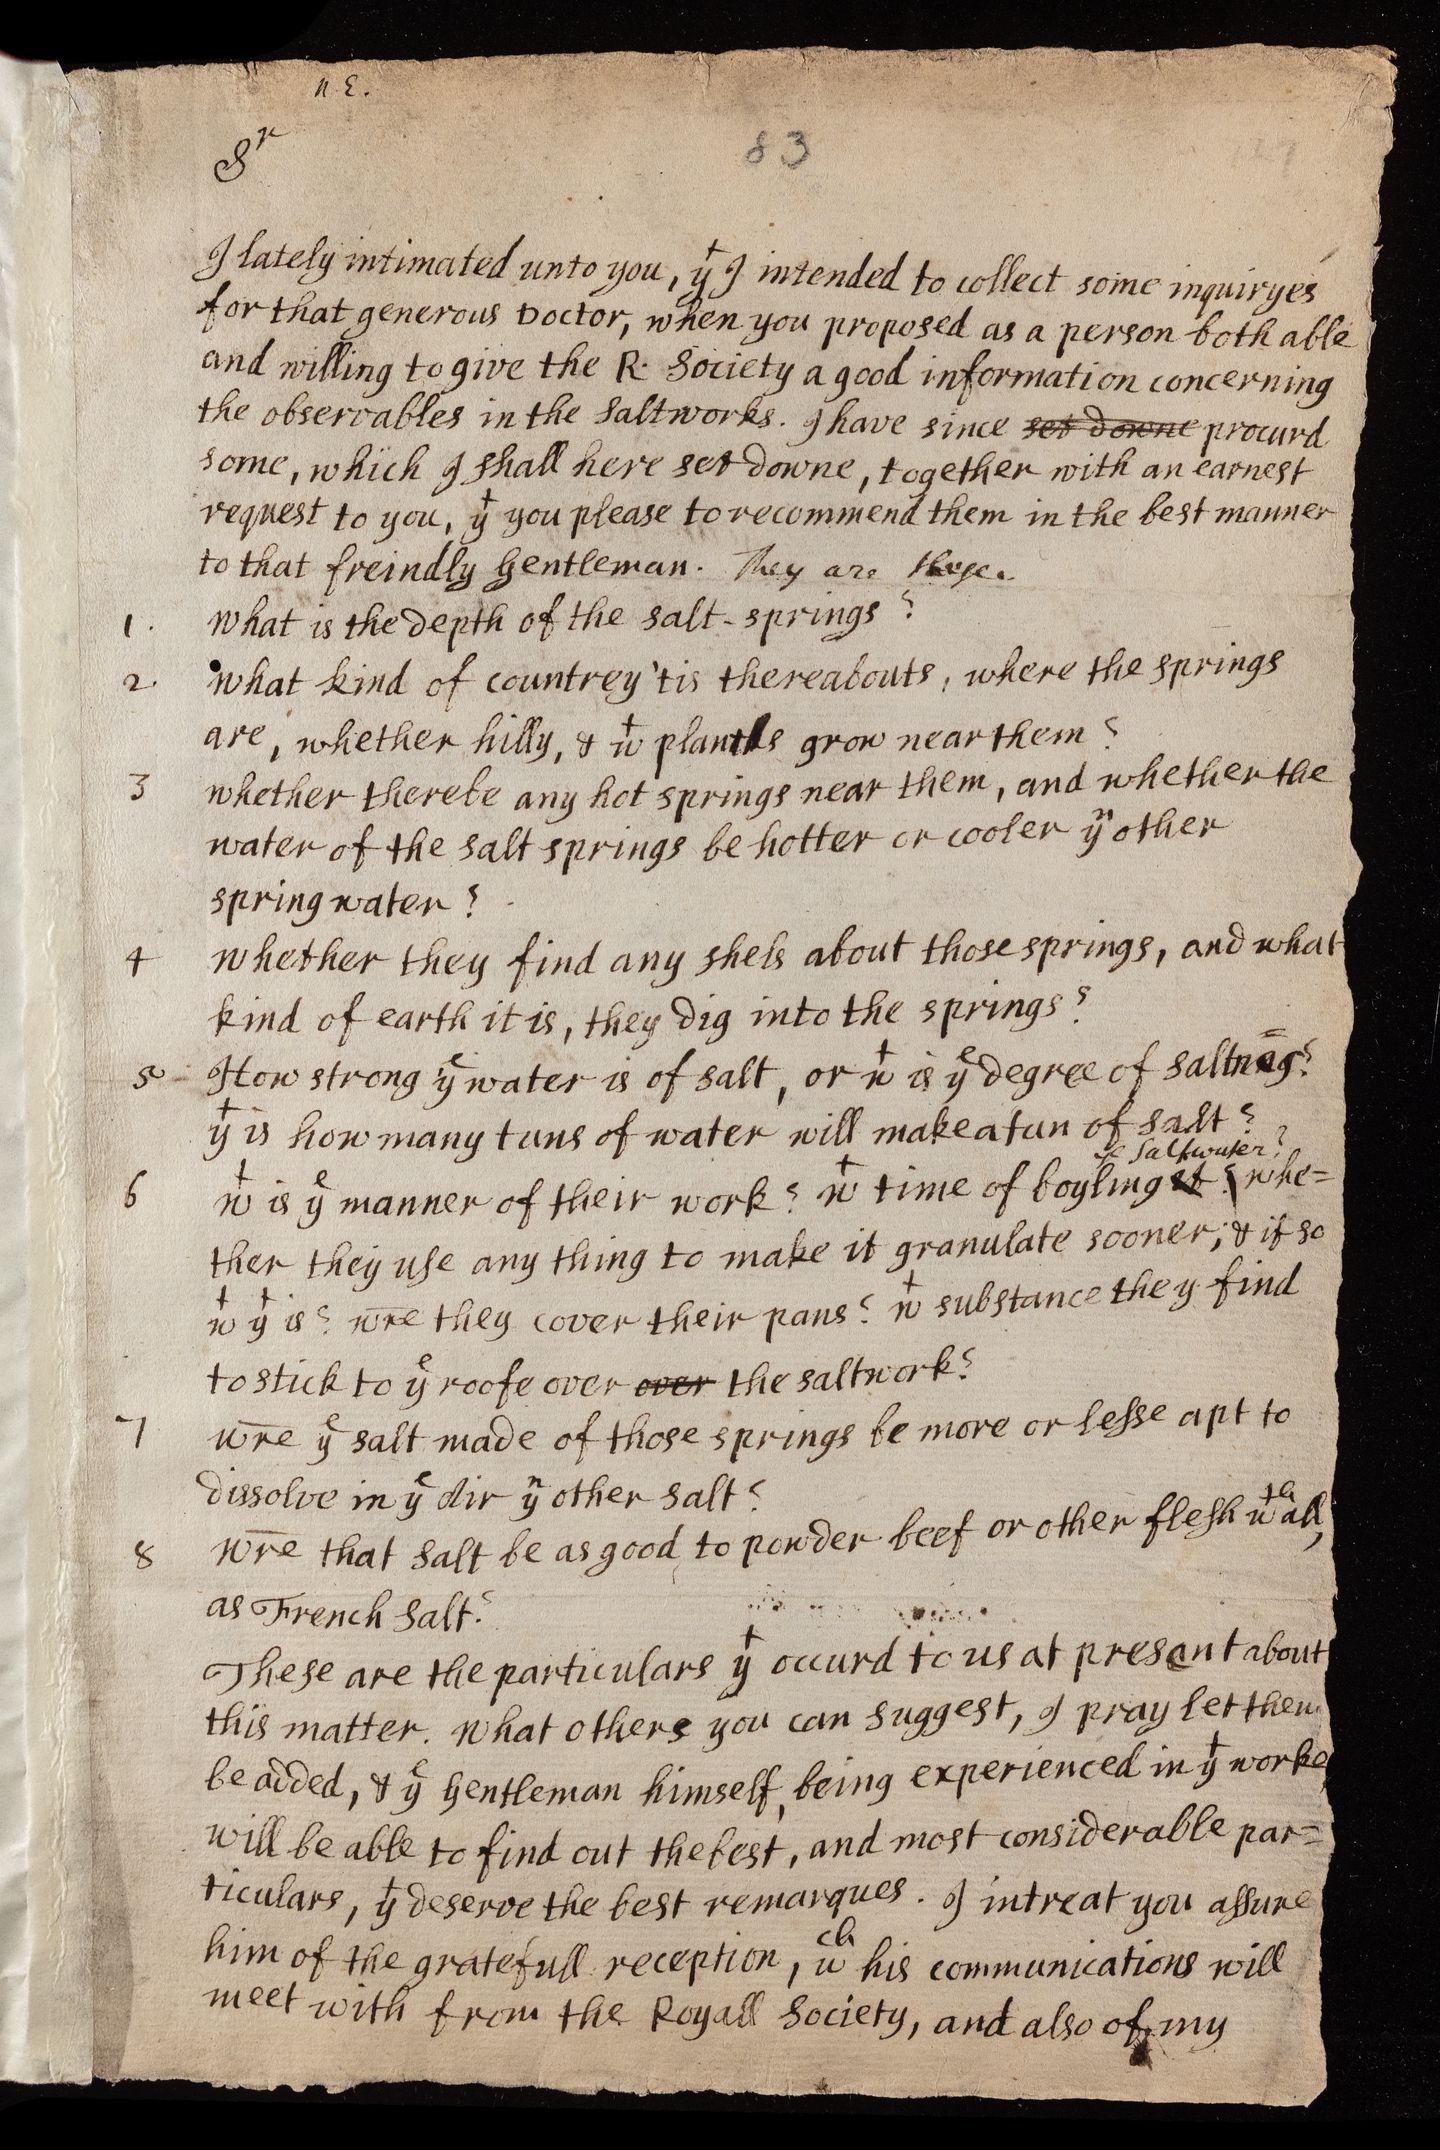 n. E.
83
Sr
I lately intimated unto you, yt I intended to collect some inquiryes
for that generous Doctor, when you proposed as a person both able
and willing to give the R. Society a good information concerning
the observables in the Saltworks. I have since set downe procurd
some, which I shall here set downe, together with an earnest
request to you, yt you please to recommend them in the best manner
to that freindly gentleman. They are these.
1. What is the depth of the salt-springs?
2. What kind of countrey 'tis thereabouts, where the springs
are, whether hilly, & wt plants grow near them?
3 whether there be any hot springs near them, and whether the
water of the salt springs be hotter or cooler yn other
spring water?
4 whether they find any shels about those springs, and what
kind of earth it is, they dig into the springs?
5 How strong ye water is of salt, or wt is ye degree of
yt is how many tuns of water will make a tun of salt?
ye Saltwater?
6 wt is ye manner of their work? wt time of boyling it? whe=
ther they use any thing to make it granulate sooner; & if so
wt yt is? wre they cover their pans? wt substance they find
to stick to ye roofe over over the saltwork?
7 wre ye salt made of those springs be more or lesse apt to
dissolve in ye air yn other salt?
8 wre that salt be as good to powder beef or other flesh wth all,
as French salt?
These are the particulars yt occurd to us at present about
this matter. What others you can suggest, I pray let them
be added, & ye gentleman himself, being experienced in yt worke,
will be able to find out the best, and most considerable par=
ticulars, yt deserve the best remarques. I intreat you assure
him of the gratefull reception, wch his communications will
meet with from the Royall Society, and also of my